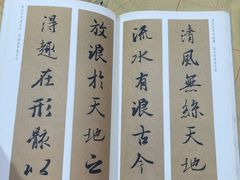 清風無絲天地
流水有浪古今
放浪於天地之
得趣在形骸以